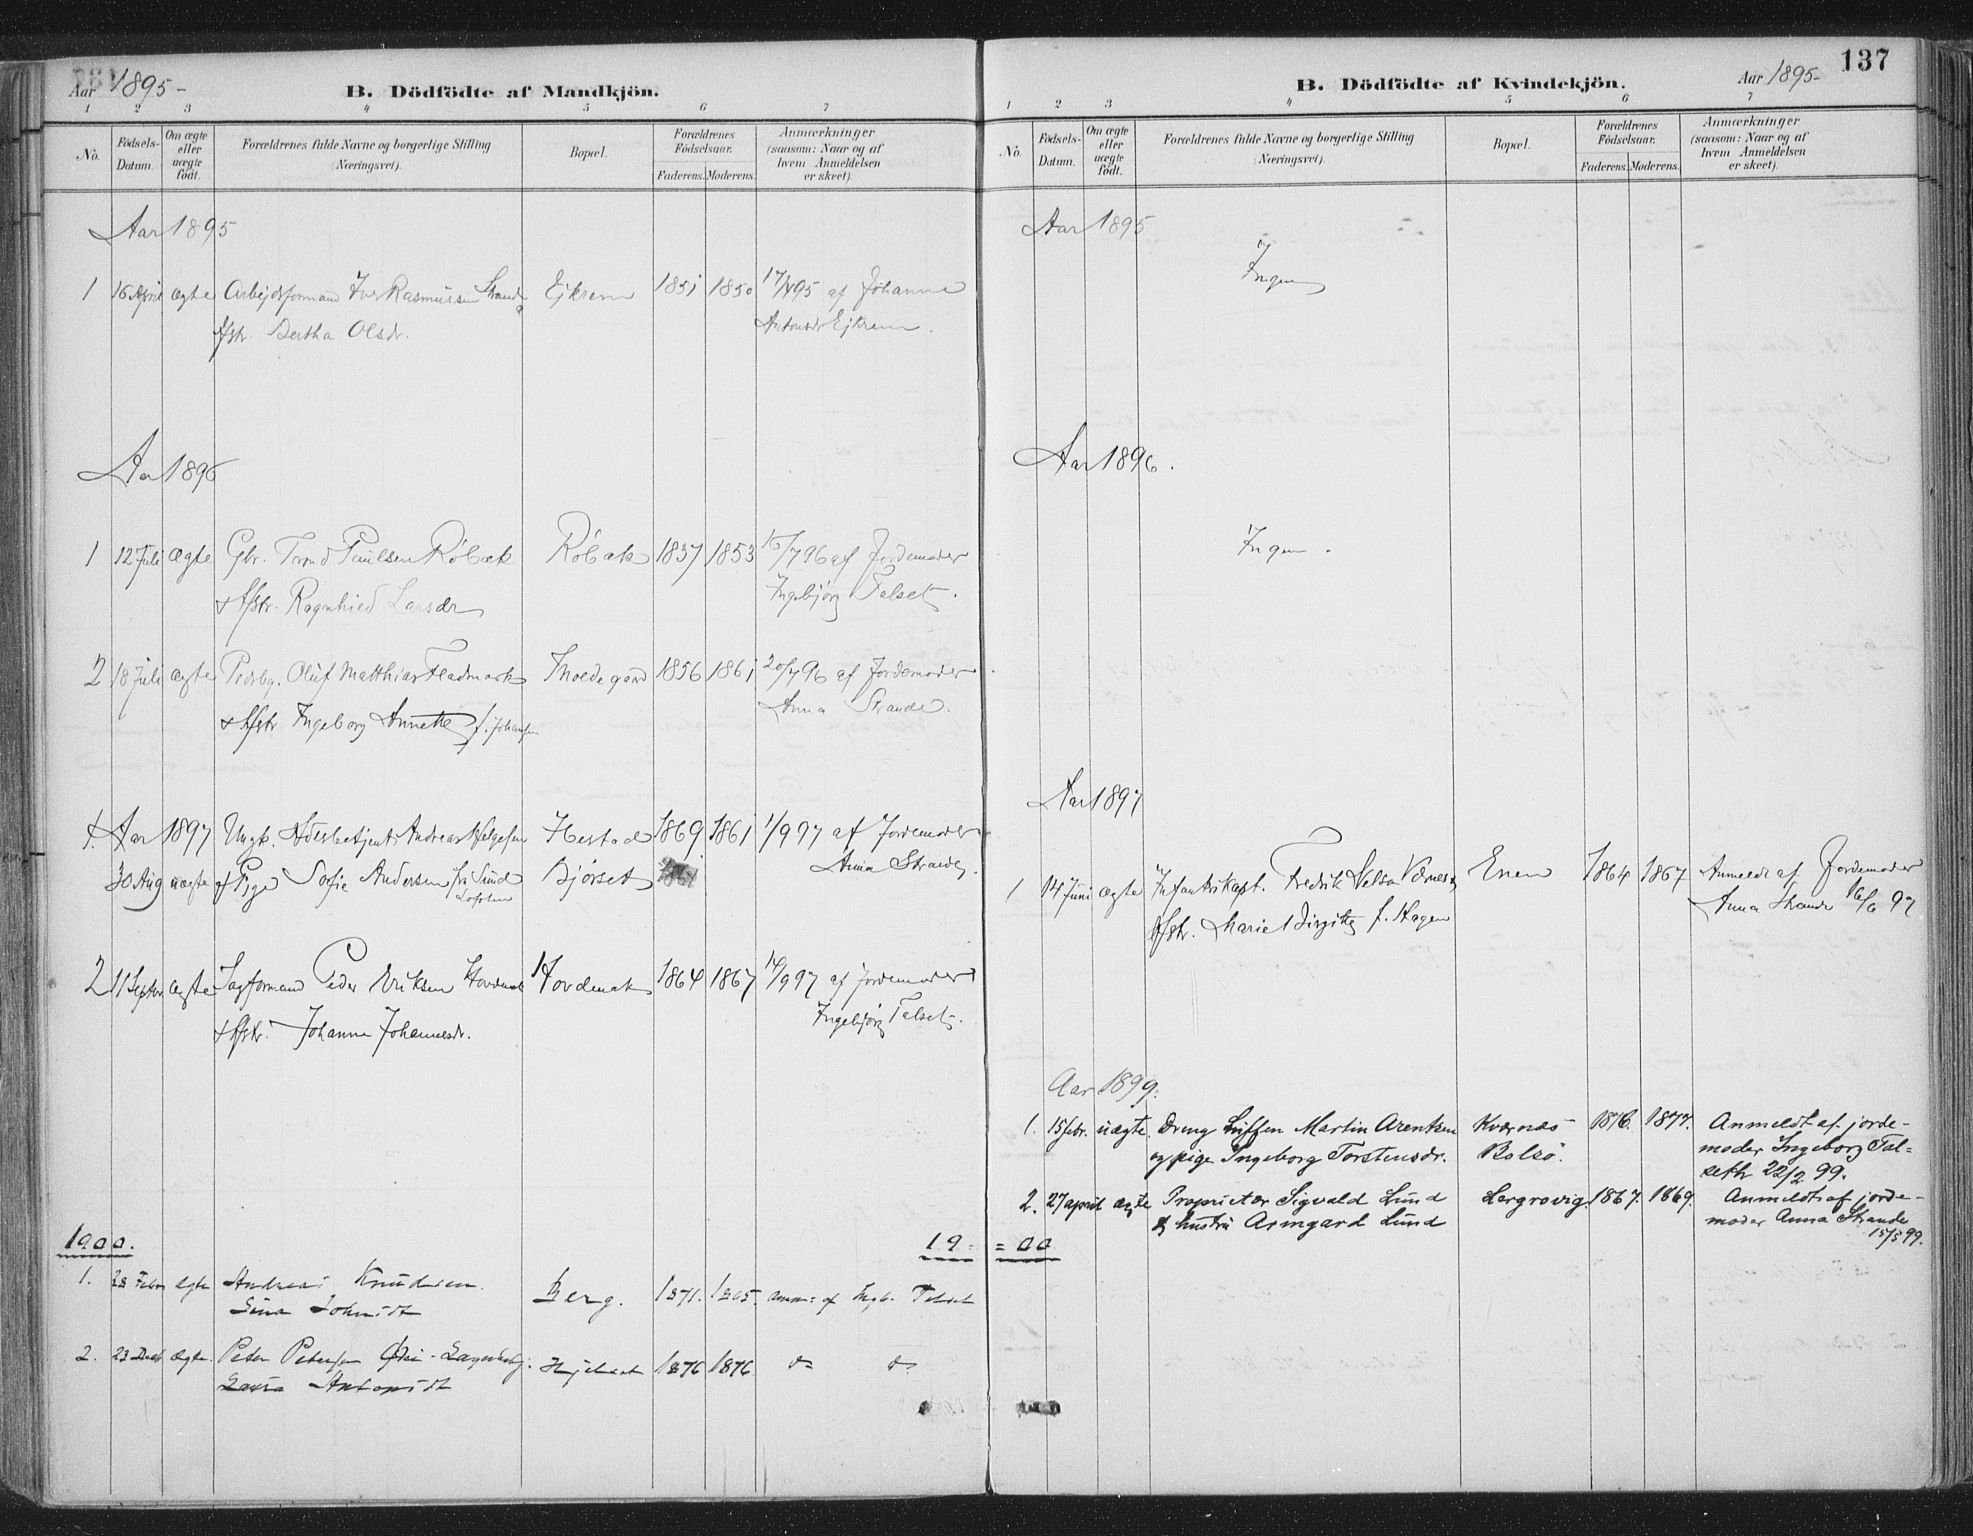 Aar 1895-
B. Dödfödte af Mandkjön.
1 2 3 4 5 6 7
No.
Födsels-Datum.
Om ægte eller uægte födt.
Forældrenes fulde Navne og borgerlige Stilling
(Næringsvei).
Bopæl.
Forældrenes Födselsaar.
Faderens. Moderens.
Anmærkninger
(saasom: Naar og af
hvem Anmeldelsen
er skeet).
Aar 1895
1 16 April ægte Arbejdsformand Iver Rasmussen Strande Ejkrem 1851 1850 17/4 95 af Johanne
Hstr. Bertha Olsdr. Antonsdr Ejkrem.
Aar 1896
1 12 Juli ægte Gbr. Trond Paulsen Røbæk Røbæk 1857 1853 15/7 96 af Jordemoder
+ Hstr. Ragnhild Larsdr Ingebjørg Talset.
2 18 Juli ægte Oluf Matthias 1856 1861 20/7 96 af Jordemoder
+ Hstr. Ingeborg Annette f. Johansen Anna Strande.
1. Aar 1897 Ungk. Andreas Helgesen Hestad 1869 1861 1/9 97 af Jordemoder
30 Aug uægte & Pige Sofie Andersen fra Sund Bjørset Anna Strande.
Lofoten
2 11 Septbr ægte Peder Eriksen Hovdenak Hovdenak 1864 1867 14/9 97 af Jordemoder
+ Hstr. Johanne Johannesdr. Ingebjørg Talset.
1900.
1. 28 Febr ægte Andreas Knudsen Berg. 1871. 1865. Anm: af Ingb. Talset
Lina Schmidt
2. 23 ægte. Peter Petersen Hjelset 1876 1876 do do
137
Aar 1895-
B. Dödfödte af Kvindekjön.
1 2 3 4 5 6 7
No.
Födsels-Datum.
Om ægte eller uægte födt.
Forældrenes fulde Navne og borgerlige Stilling
(Næringsvei).
Bopæl.
Forældrenes Födselsaar.
Faderens. Moderens.
Anmærkninger
(saasom: Naar og af
hvem Anmeldelsen
er skeet).
Aar 1895
Ingen
Aar 1896.
Ingen.
Aar 1897
1 14 Juni ægte Infantrikapt. Fredrik Værnes Enen 1864 1867 Anmeldt af Jordemoder
Hstr. Marie Birgitte f. Hagen Anna Strande 16/6 97
Aar 1899.
1. 15 febr. uægte. Dreng Martin Arentsen Kværnæs 1876. 1877. Anmeldt af jorde-
og pige Ingeborg Torstensdr. Bolsø. moder Ingeborg Tal=
seth 22/2 99.
2. 27 april ægte Proprietær Sigvald Lund Lergrovig. 1867. 1869. Anmeldt af jorde-
& hustru Armgard Lund moder Anna Strande
15/5 99.
19 = = 00